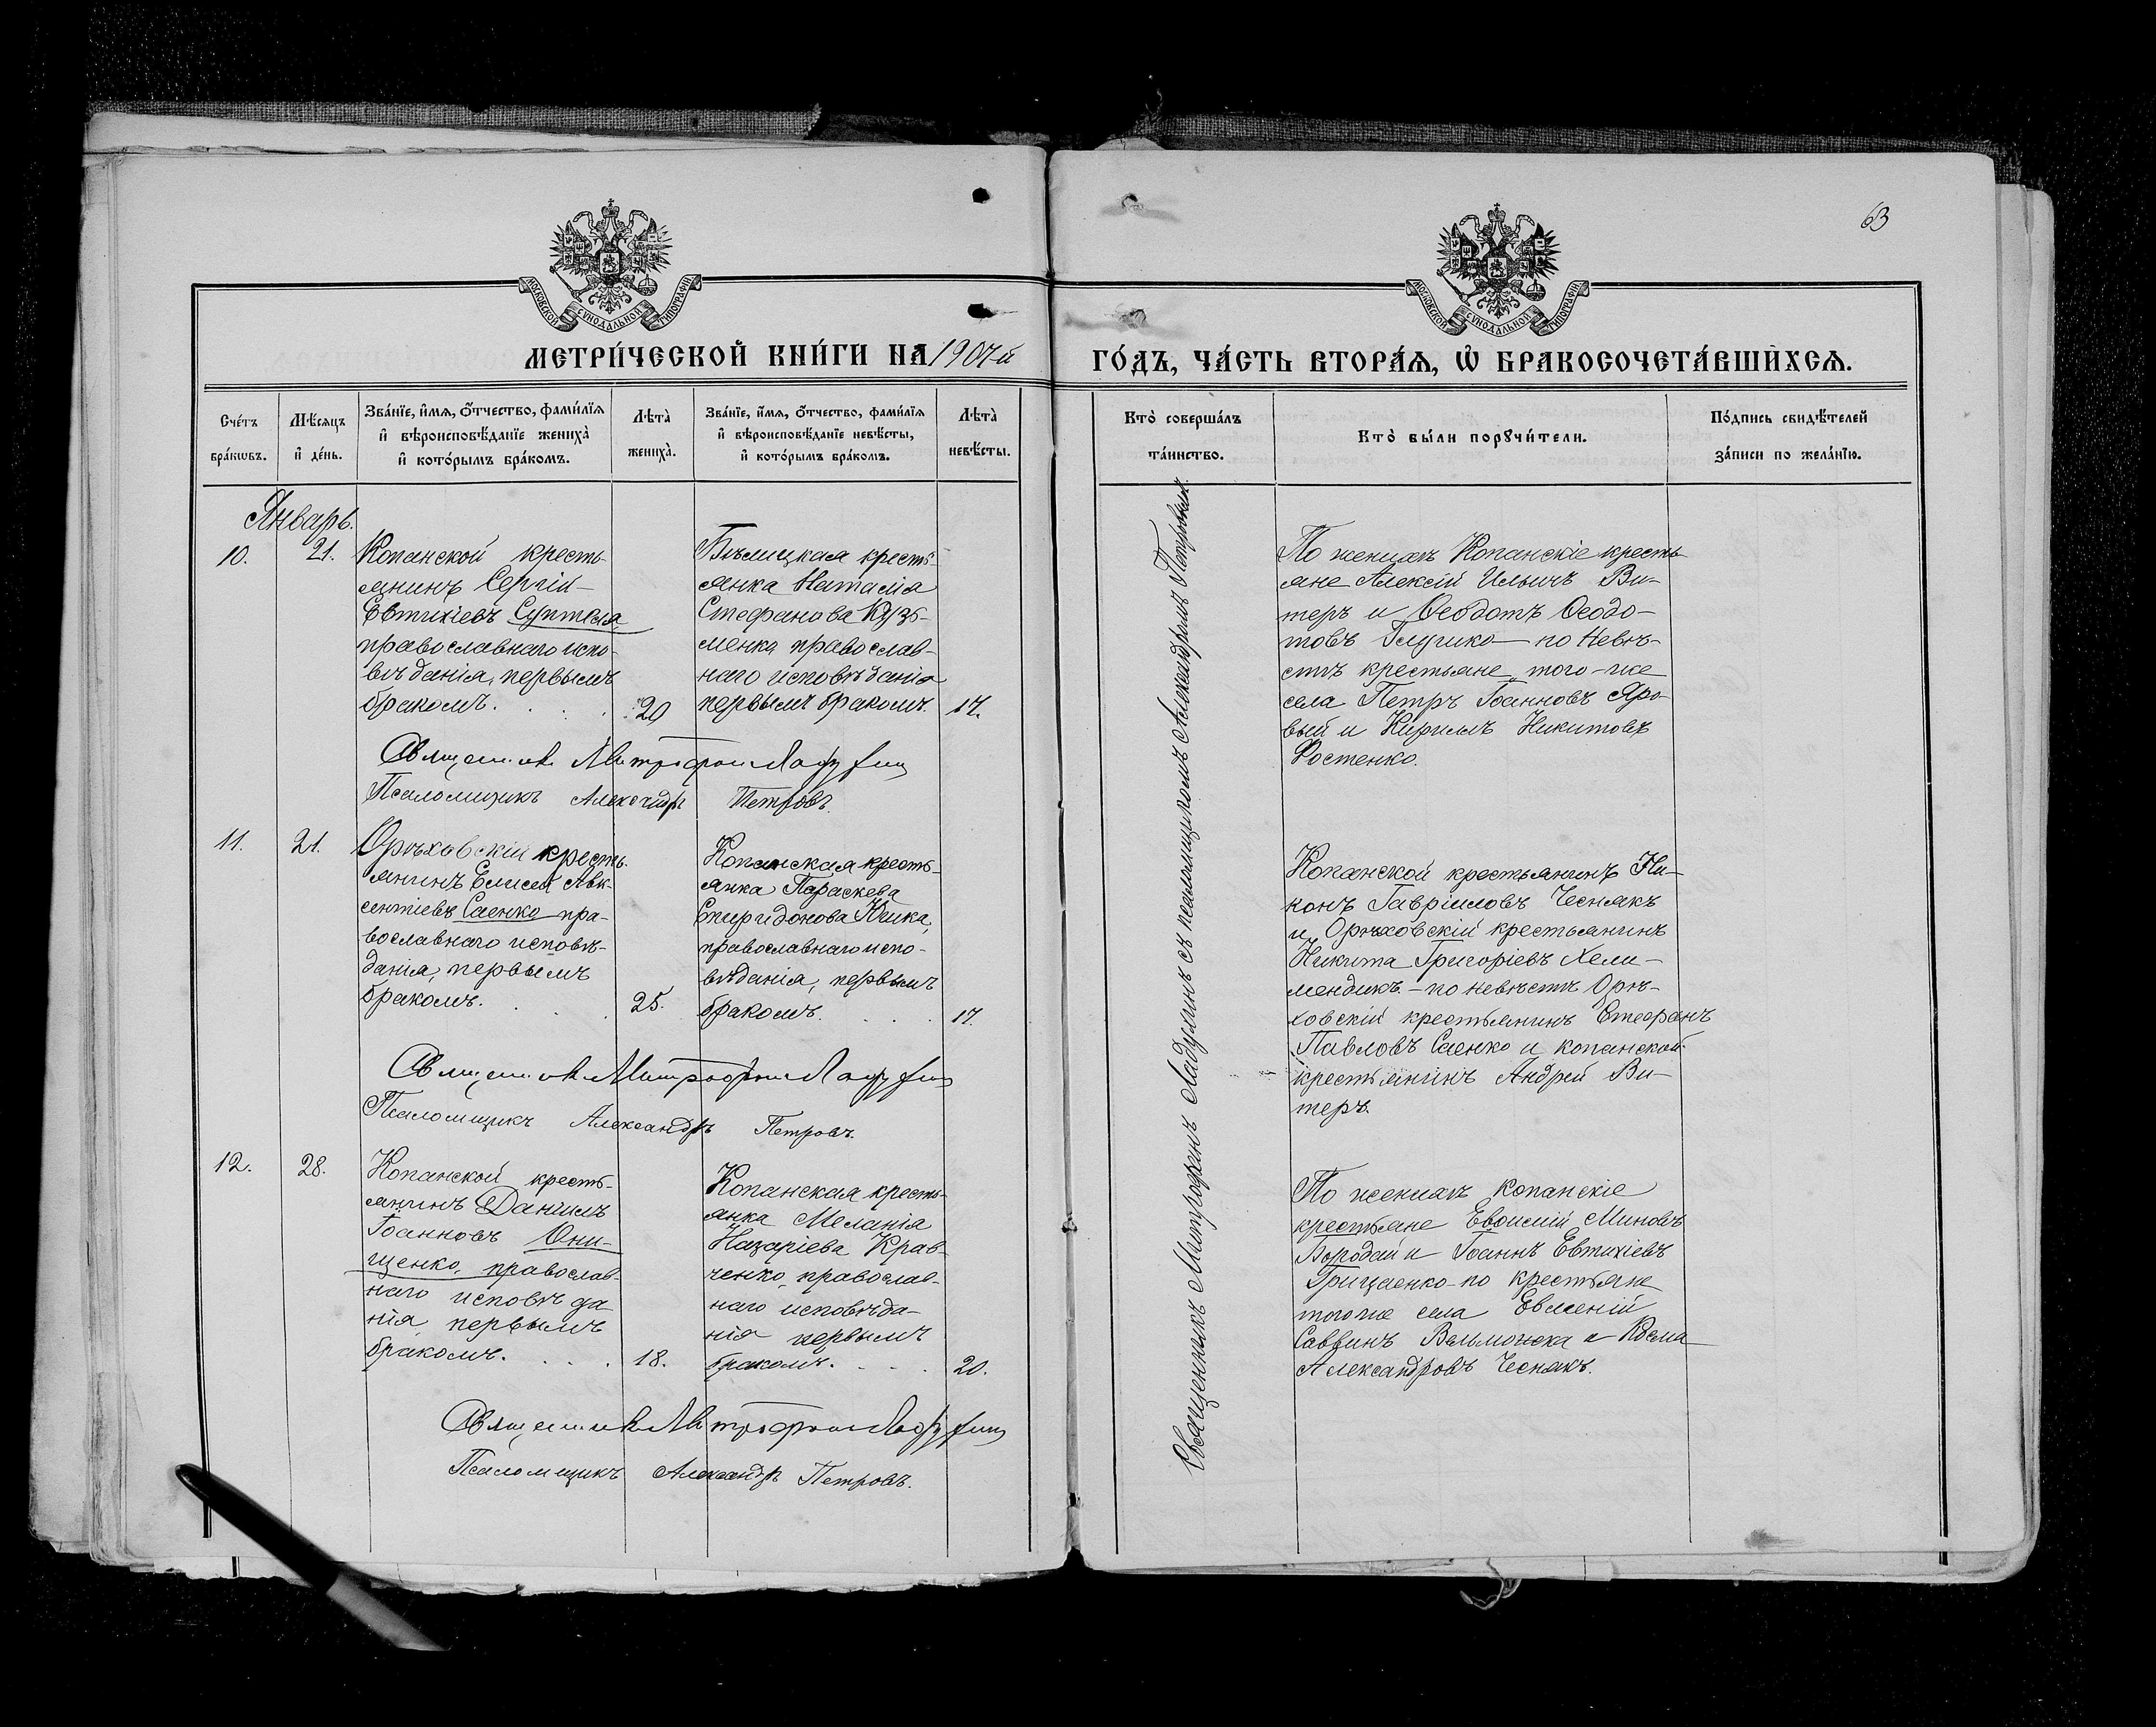 63
МОСКОВСКОЙ СѴНОДАЛЬНОЙ ТИПОГРАФІИ
МОСКОВСКОЙ СѴНОДАЛЬНОЙ ТИПОГРАФІИ
МЕТРИ́ЧЕСКОЙ КНИ́ГИ НА 1907й ГО́ДЪ, ЧА́СТЬ ВТОРА́Ѧ, Ѡ БРАКОСОЧЕТА́ВШИХСѦ.
Сче́тъ бра́кѡвъ.
Мѣ́сѧцъ и де́нь.
Зва́нїе, и́мѧ, ѻ́тчество, фами́лїѧ и вѣроисповѣ́данїе жениха̀ и кото́рымъ бра́комъ.
Лѣта̀ жениха̀.
Зва́нїе, и́мѧ, ѻ́тчество, фами́лїѧ и вѣроисповѣ́данїе невѣ́сты, и кото́рымъ бра́комъ.
Лѣта̀ невѣ́сты.
Кто̀ соверша́лъ та́инство.
Кто̀ бы́ли порꙋчи́тели.
По́дпись свидѣ́телей за́писи по жела́нїю.
Январь.
10.
21.
Копанской кресть-
янинъ Сергій
Евтихіевъ Суптеля
православнаго испо-
вѣданія, первымъ
бракомъ.
20
Бѣлицкая кресть-
янка Наталія
Стефанова Кузь-
менко православ-
наго исповѣданія
первымъ бракомъ.
17.
Священникъ Митрофанъ Ладухинъ
Псаломщикъ Александръ Петровъ.
11.
21.
Орѣховскій кресть-
янинъ Елисей Авк-
сентіевъ Саенко пра-
вославнаго исповѣ-
данія, первымъ
бракомъ.
25.
Копанская кресть-
янка Параскева
Спиридонова Кшка,
православнаго испо-
вѣданія, первымъ
бракомъ.
17.
Священникъ Митрофанъ Ладухинъ
Псаломщикъ Александръ Петровъ.
12.
28.
Копанской кресть-
янинъ Даніилъ
Іоанновъ Они-
щенко, православ-
наго исповѣда
нія первымъ
бракомъ.
18.
Копанская кресть-
янка Меланія
Назаріева Крав-
ченко, православ-
наго исповѣда-
нія первымъ
бракомъ.
20.
Священникъ Митрофанъ Ладухинъ
Псаломщикъ Александръ Петровъ.
Священникъ Митрофанъ Ладухинъ съ псаломщикомъ Александромъ Петровымъ.
По женихѣ Копанскіе кресть-
яне Алексій Ильичъ Ви-
теръ и Ѳеодотъ Ѳеодо-
товъ Глушко – по невѣ-
стѣ крестьяне того-же
села Петръ Іоанновъ Яро-
вый и Кириллъ Никитовъ
Костенко.
Копанской крестьянинъ Ни-
конъ Гавріиловъ Чеснакъ
и Орѣховскій крестьянинъ
Никита Григоріевъ Хели-
мендикъ – по невѣстѣ Орѣ-
ховскій крестьянинъ Стефанъ
Павловъ Саенко и копанской
крестьянинъ Андрей Ви-
теръ.
По женихѣ копанскіе
крестьяне Евѳимій Миновъ
Бородай и Іоаннъ Евтихіевъ
Грицаенко – по крестьяне
тогоже села Евгеній
Саввинъ Вельможка и Косма
Александровъ Чеснакъ.